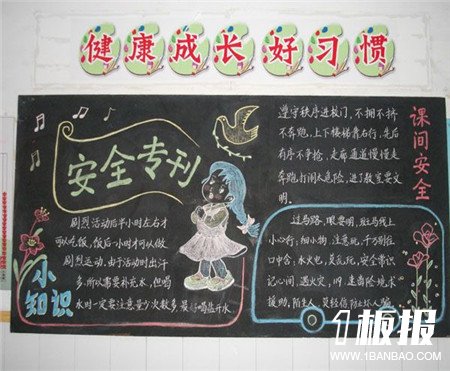 健康成长好习惯
安全专刊
剧烈活动后半小时左右才
可以吃饭，饭后一小时才可以做
剧烈运动，由于活动时出汗
多，所以需要补充水，但喝
水时一定要注意量少次数多，最好喝盐开水
小知识
课间安全
遵守秩序进校门，不拥不挤
不奔跑，上下楼梯靠右行，先后
有序不争抢，走廊通道慢慢走
奔跑打闹太危险，进了教室要文
明。
过马路，眼要明，斑马线上
小心行，细小物，注意玩，千万别往
口中含，水火电，莫乱玩，安全常识
记心间，遇火灾，119，走离险境求
援助，陌生人，莫轻信防止坏人骗
1板报
WWW.1BANBAO.COM